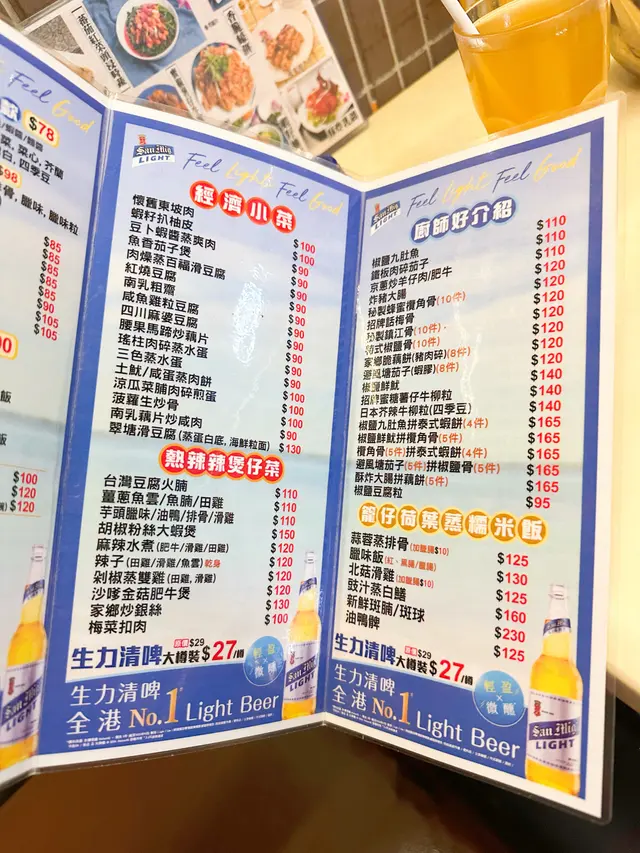 Feel Good
$78
菜, 菜心, 芥蘭
白, 四季豆
$98
骨, 臘味, 臘味粒
$85
$85
$85
$85
$85
$90
$105
$105
飯
飯
$100
$120
$120
San Mig
LIGHT
Feel Light Feel Good
經濟小菜
懷舊東坡肉 $100
蝦籽扒柚皮 $100
豆卜蝦醬蒸爽肉 $90
魚香茄子煲 $90
肉燥蒸百福滑豆腐 $90
紅燒豆腐 $90
南乳粗齋 $90
咸魚雞粒豆腐 $90
四川麻婆豆腐 $90
腰果馬蹄炒藕片 $90
瑤柱肉碎蒸水蛋 $90
三色蒸水蛋 $90
土魷/咸蛋蒸肉餅 $100
涼瓜菜脯肉碎煎蛋 $100
菠蘿生炒骨 $100
南乳藕片炒咸肉 $90
翠塘滑豆腐 (蒸蛋白底, 海鮮粒面) $130
熱辣辣煲仔菜
台灣豆腐火腩 $110
薑蔥魚雲/魚腩/田雞 $110
芋頭臘味/油鴨/排骨/滑雞 $110
胡椒粉絲大蝦煲 $150
麻辣水煮 (肥牛/滑雞/田雞) $120
辣子 (田雞/滑雞/魚雲) 乾身 $120
剁椒蒸雙雞 (田雞, 滑雞) $120
沙嗲金菇肥牛煲 $120
家鄉炒銀絲 $130
梅菜扣肉 $100
生力清啤 大樽裝 原價$29 $27/樽
輕盈×微醺
生力清啤
全港 No.1 Light Beer
San Mig
LIGHT
San Mig
LIGHT
Feel Light Feel Good
廚師好介紹
$110
椒鹽九肚魚 $110
鐵板肉碎茄子 $110
京蔥炒羊仔肉/肥牛 $120
炸豬大腸 $120
秘製蜂蜜欖角骨 (10件) $120
招牌話梅骨 $120
秘製鎮江骨 (10件) $120
椒鹽骨 (10件) $120
家鄉脆藕餅 (豬肉碎) (8件) $120
避風塘茄子 (蝦膠) (8件) $140
椒鹽鮮魷 $140
招牌蜜糖薯仔牛柳粒 $140
日本芥辣牛柳粒 (四季豆) $165
椒鹽九肚魚拼泰式蝦餅 (4件) $165
椒鹽鮮魷拼欖角骨 (5件) $165
欖角骨 (5件) 拼泰式蝦餅 (4件) $165
避風塘茄子 (5件) 拼椒鹽骨 (5件) $165
酥炸大腸拼藕餅 (5件)
椒鹽豆腐粒 $95
籠仔荷葉蒸糯米飯
蒜蓉蒸排骨 (加臘腸$10) $125
臘味飯 $130
北菇滑雞 (加臘腸$10) $125
豉汁蒸白鱔 $160
新鮮斑腩/斑球 $230
油鴨髀 $125
生力清啤 大樽裝 原價$29 $27/樽
輕盈×微醺
生力清啤
全港 No.1 Light Beer
San Mig
LIGHT